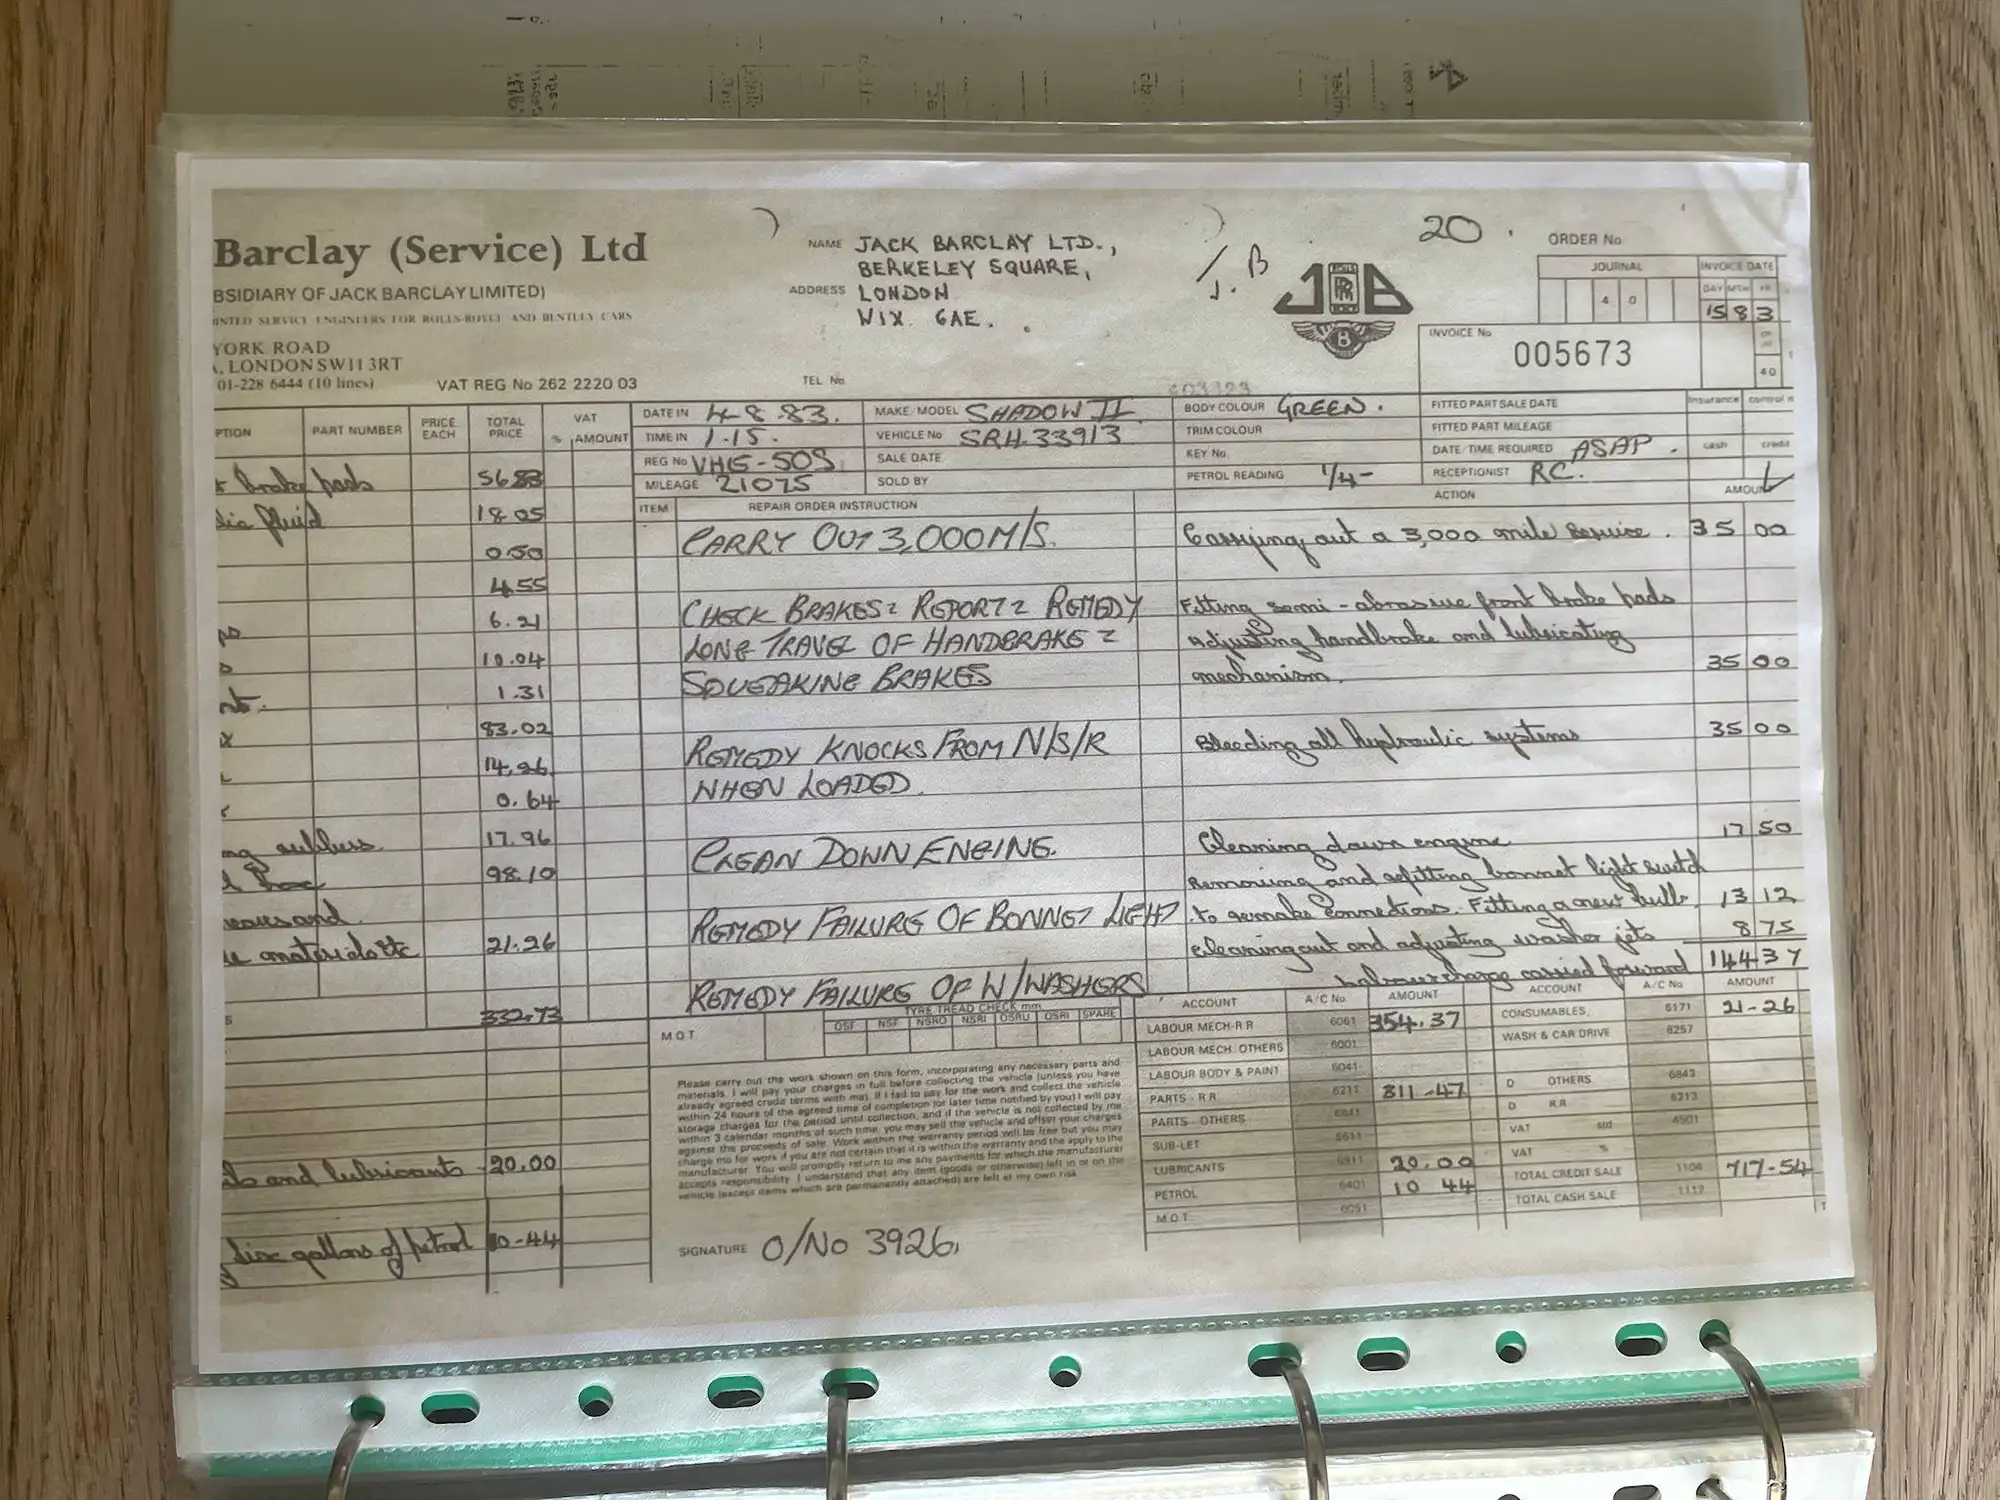 Barclay (Service) Ltd
BSIDIARY OF JACK BARCLAY LIMITED)
INTED SERVICE ENGINEERS FOR ROLLS-ROYCE AND BENTLEY CARS
YORK ROAD
LONDON SW11 3RT
01-228 6444 (10 lines)
VAT REG No 262 2220 03
NAME JACK BARCLAY LTD.,
BERKELEY SQUARE,
ADDRESS LONDON
W1X 6AE.
TEL No
J.B
20.
JB
RR
B
ORDER No
JOURNAL
4 0
INVOICE DATE
DAY MTH YR
15 8 3
INVOICE No
005673
40
PTION PART NUMBER PRICE EACH TOTAL PRICE VAT % AMOUNT
DATE IN 4-8.83. MAKE/MODEL SHADOW II BODY COLOUR GREEN. FITTED PART SALE DATE
insurance
TIME IN 1.15. VEHICLE No SRH.33913 TRIM COLOUR FITTED PART MILEAGE
REG No VHG-50S SALE DATE KEY No DATE/TIME REQUIRED ASAP. cash credit
MILEAGE 21075 SOLD BY PETROL READING 1/4- RECEPTIONIST RC.
ITEM REPAIR ORDER INSTRUCTION ACTION AMOUNT
brake pads 56.83
fluid 18.05
0.50
4.55
6.21
10.04
1.31
83.02
14.26
0.64
17.96
98.10
materials etc 21.26
332.73
and lubricants 20.00
gallons of petrol 10-44
CARRY OUT 3,000M/S. Carrying out a 3,000 mile service. 35 00
CHECK BRAKES & REPORT & REMEDY Fitting semi-abrasive front brake pads
LONG TRAVEL OF HANDBRAKE & adjusting handbrake and lubricating
SQUEAKING BRAKES mechanism. 35 00
REMEDY KNOCKS FROM N/S/R Bleeding all hydraulic systems 35 00
WHEN LOADED.
CLEAN DOWN ENGINE. Cleaning down engine 17 50
Removing and refitting bonnet light switch
REMEDY FAILURE OF BONNET LIGHT to remake connections. Fitting a new bulb. 13 12
cleaning out and adjusting washer jets 8 75
REMEDY FAILURE OF W/WASHERS Labour charge carried forward 144 37
TYRE TREAD CHECK mm
M.O.T. OSF NSF NSRO NSRI OSRO OSRI SPARE
Please carry out the work shown on this form, incorporating any necessary parts and
materials. I will pay your charges in full before collecting the vehicle (unless you have
already agreed credit terms with me). If I fail to pay for the work and collect the vehicle
within 24 hours of the agreed time of completion (or later time notified by you) I will pay
storage charges for the period until collection, and if the vehicle is not collected by me
within 3 calendar months of such time, you may sell the vehicle and offset your charges
against the proceeds of sale. Work within the warranty period will be free but you may
charge me for work if you are not certain that it is within the warranty and the apply to the
manufacturer. You will promptly return to me any payments for which the manufacturer
accepts responsibility. I understand that any item (goods or otherwise) left in or on the
vehicle (except items which are permanently attached) are left at my own risk
SIGNATURE O/No 3926.
ACCOUNT A/C No. AMOUNT ACCOUNT A/C No. AMOUNT
LABOUR MECH-R R 6061 354.37 CONSUMABLES, 6171 21-26
LABOUR MECH. OTHERS 6001 WASH & CAR DRIVE 6257
LABOUR BODY & PAINT 6041
PARTS - R R 6211 311-47 D OTHERS 6843
PARTS - OTHERS 6841 D R.R 6213
SUB-LET 5611 VAT std 4501
LUBRICANTS 6911 20.00 VAT %
PETROL 6401 10 44 TOTAL CREDIT SALE 1106 717-54
M.O.T. 6051 TOTAL CASH SALE 1112